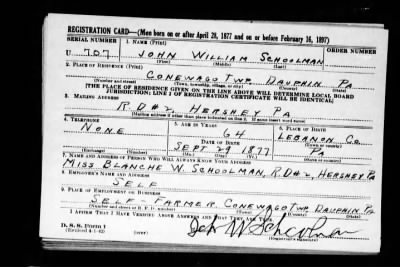 REGISTRATION CARD—(Men born on or after April 28, 1877 and on or before February 16, 1897)
SERIAL NUMBER 1. NAME (Print) ORDER NUMBER
U 707 JOHN WILLIAM SCHOOLMAN
(First) (Middle) (Last)
2. PLACE OF RESIDENCE (Print)
CONEWAGO TWP. DAUPHIN PA
(Number and street) (Town, township, village, or city) (County) (State)
[THE PLACE OF RESIDENCE GIVEN ON THE LINE ABOVE WILL DETERMINE LOCAL BOARD
JURISDICTION; LINE 2 OF REGISTRATION CERTIFICATE WILL BE IDENTICAL]
3. MAILING ADDRESS
R.D#2, HERSHEY PA
[Mailing address if other than place indicated on line 2. If same insert word same]
4. TELEPHONE 5. AGE IN YEARS 6. PLACE OF BIRTH
NONE 64 LEBANON CO.
DATE OF BIRTH (Town or county)
SEPT. 29 1877 PA
(Exchange) (Number) (Mo.) (Day) (Yr.) (State or country)
7. NAME AND ADDRESS OF PERSON WHO WILL ALWAYS KNOW YOUR ADDRESS
MISS BLANCHE W. SCHOOLMAN, R.D#2, HERSHEY, PA
8. EMPLOYER'S NAME AND ADDRESS
SELF
9. PLACE OF EMPLOYMENT OR BUSINESS
SELF - FARMER. CONEWAGO TWP. DAUPHIN PA
(Number and street or R. F. D. number) (Town) (County) (State)
I AFFIRM THAT I HAVE VERIFIED ABOVE ANSWERS AND THAT THEY ARE TRUE.
D. S. S. Form 1 John W Schoolman
(Revised 4-1-42) (over) (Registrant's signature)